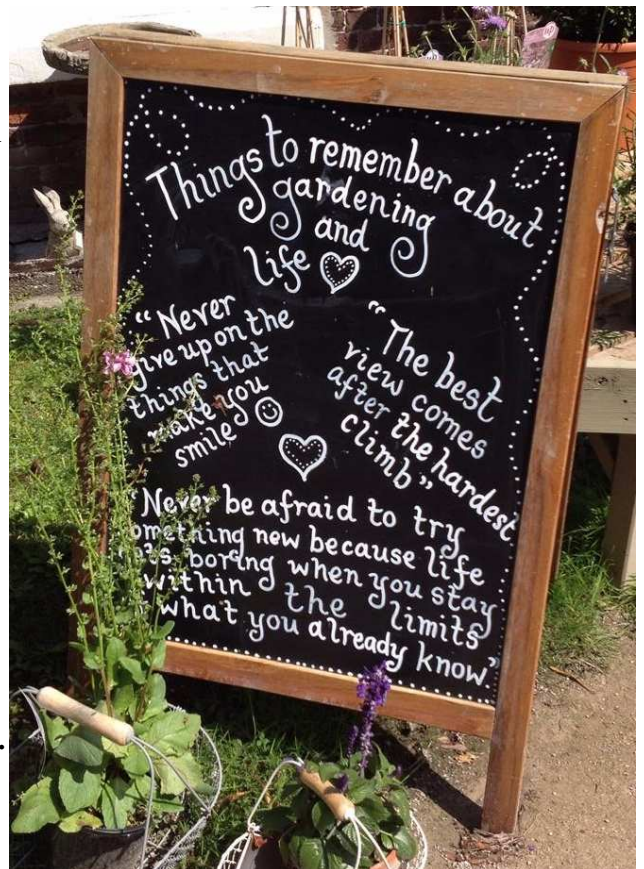 Things to remember about
gardening
and
life
"Never
give up on the
things that
make you
smile
"The best
view comes
after the hardest
climb"
"Never be afraid to try
something new because life
gets boring when you stay
within the limits
what you already know."